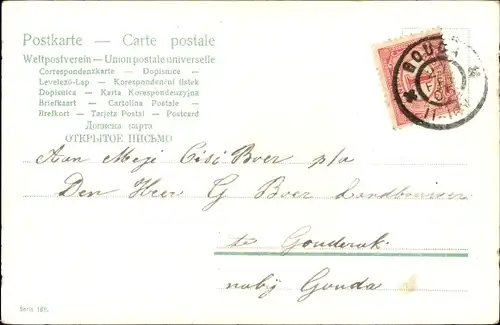 Postkarte — Carte postale
Weltpostverein – Union postale universelle
Correspondenzkarte – Dopisnice –
Levelező-Lap – Korespondenční lístek
Dopisnica – Karta Korespondenzyjna
Briefkaart – Cartolina Postale –
Brefkort – Tarjeta Postal – Postcard
Дописна карта
ОТКРЫТОЕ ПИСЬМО
GOUDA
Aan Mej Cisi Boer p/a
Den Heer G Boer Landbouwer
te Gouderak
nabij Gouda